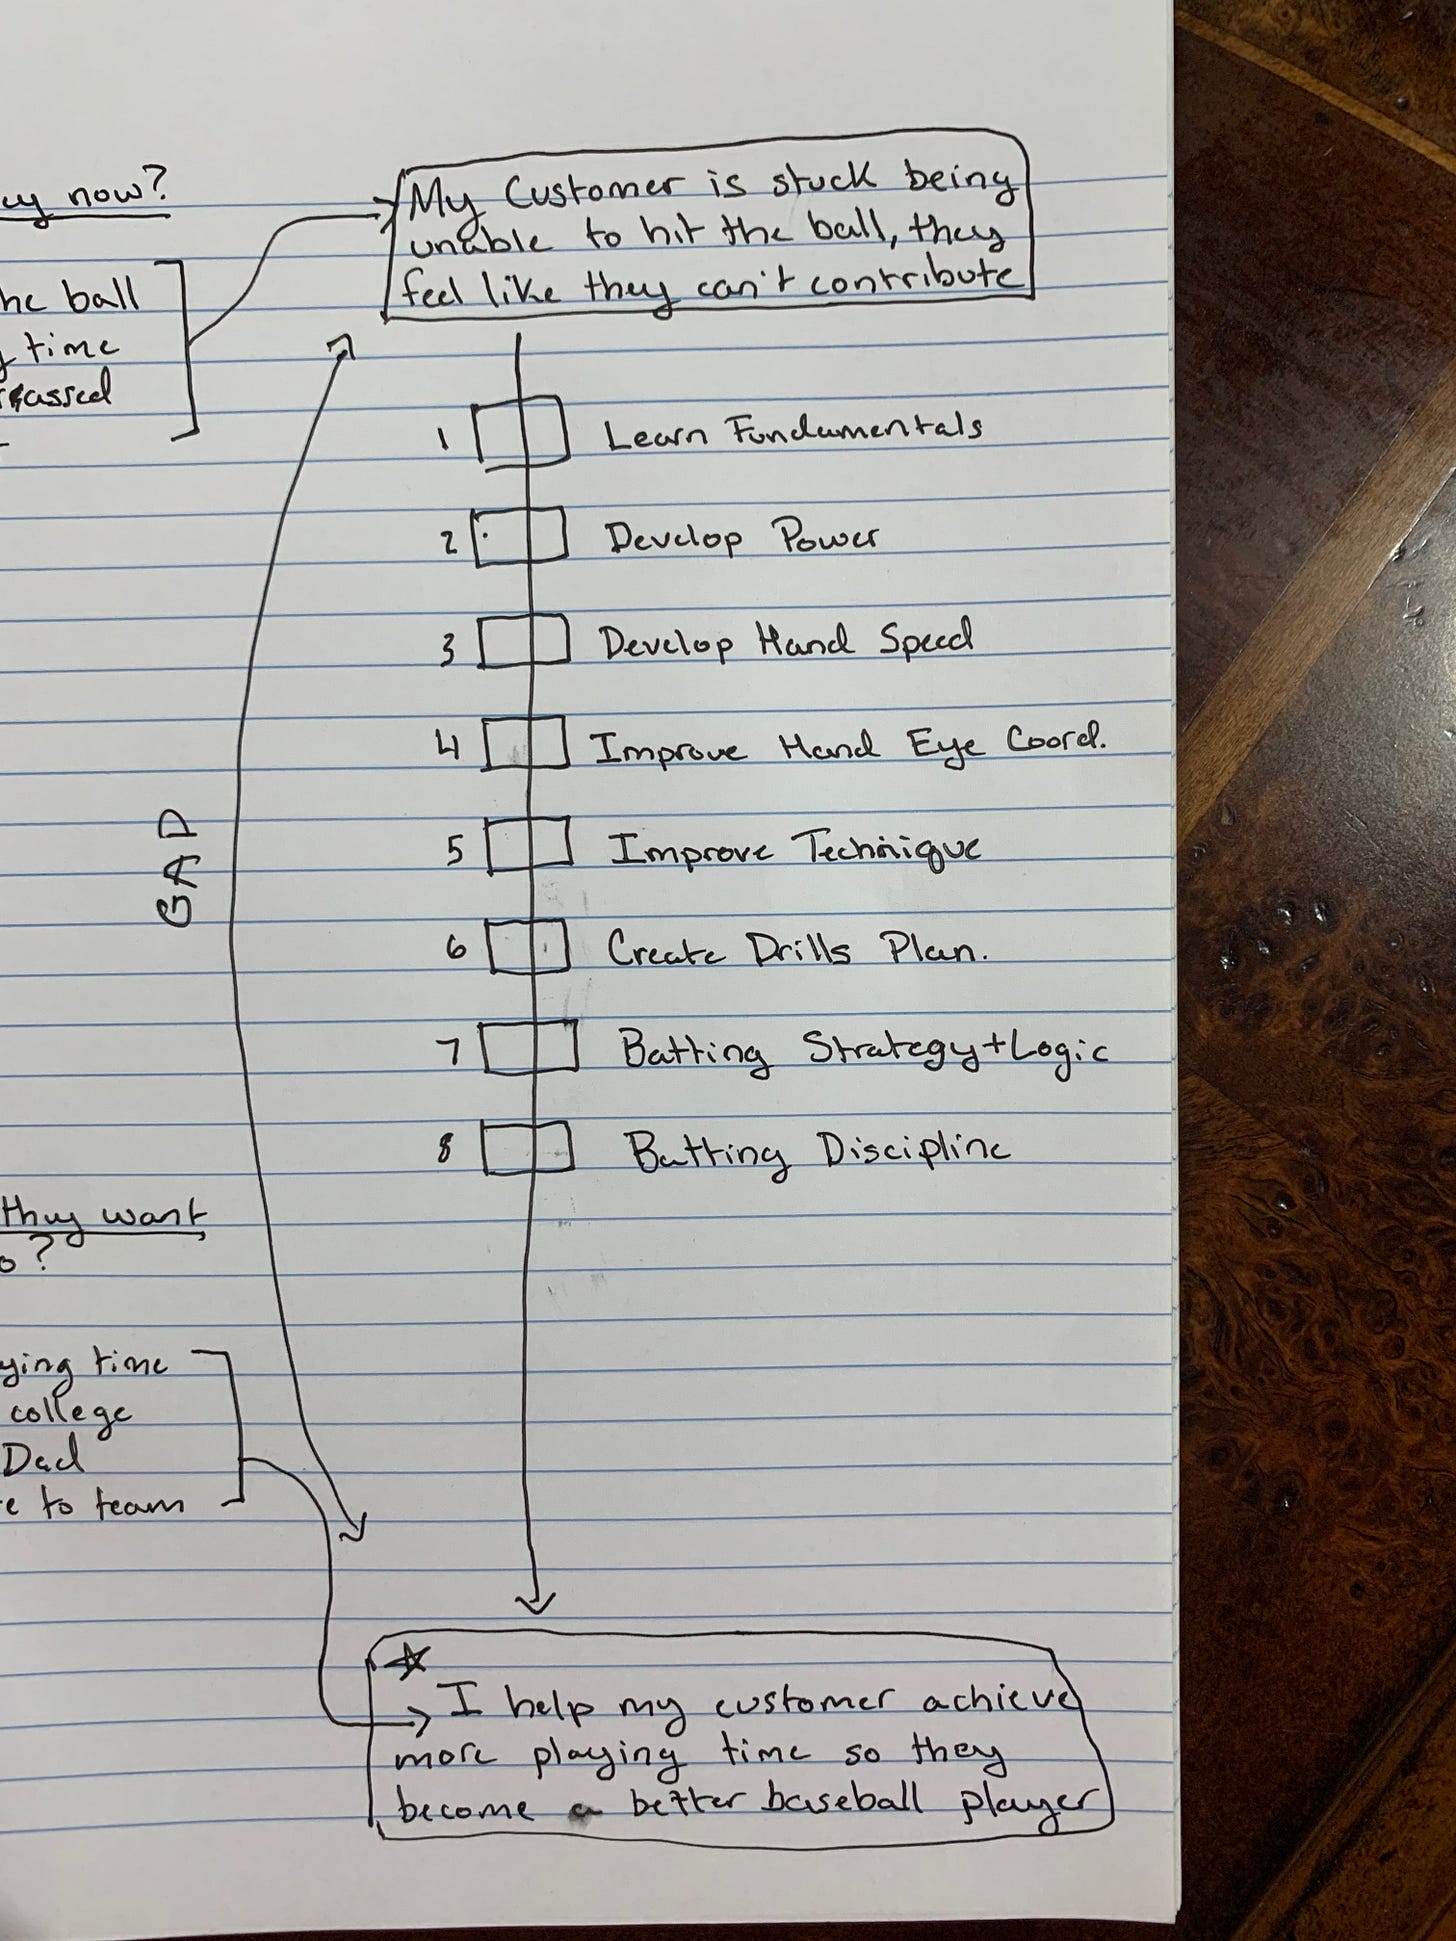 now?
My Customer is stuck being
unable to hit the ball, they
feel like they can't contribute
ball
time
1 Learn Fundamentals
2 Develop Power
3 Develop Hand Speed
4 Improve Hand Eye Coord.
5 Improve Technique
GAP
6 Create Drills Plan.
7 Batting Strategy+Logic
8 Batting Discipline
they want
?
time
college
Dad
to team
I help my customer achieve
more playing time so they
become a better baseball player